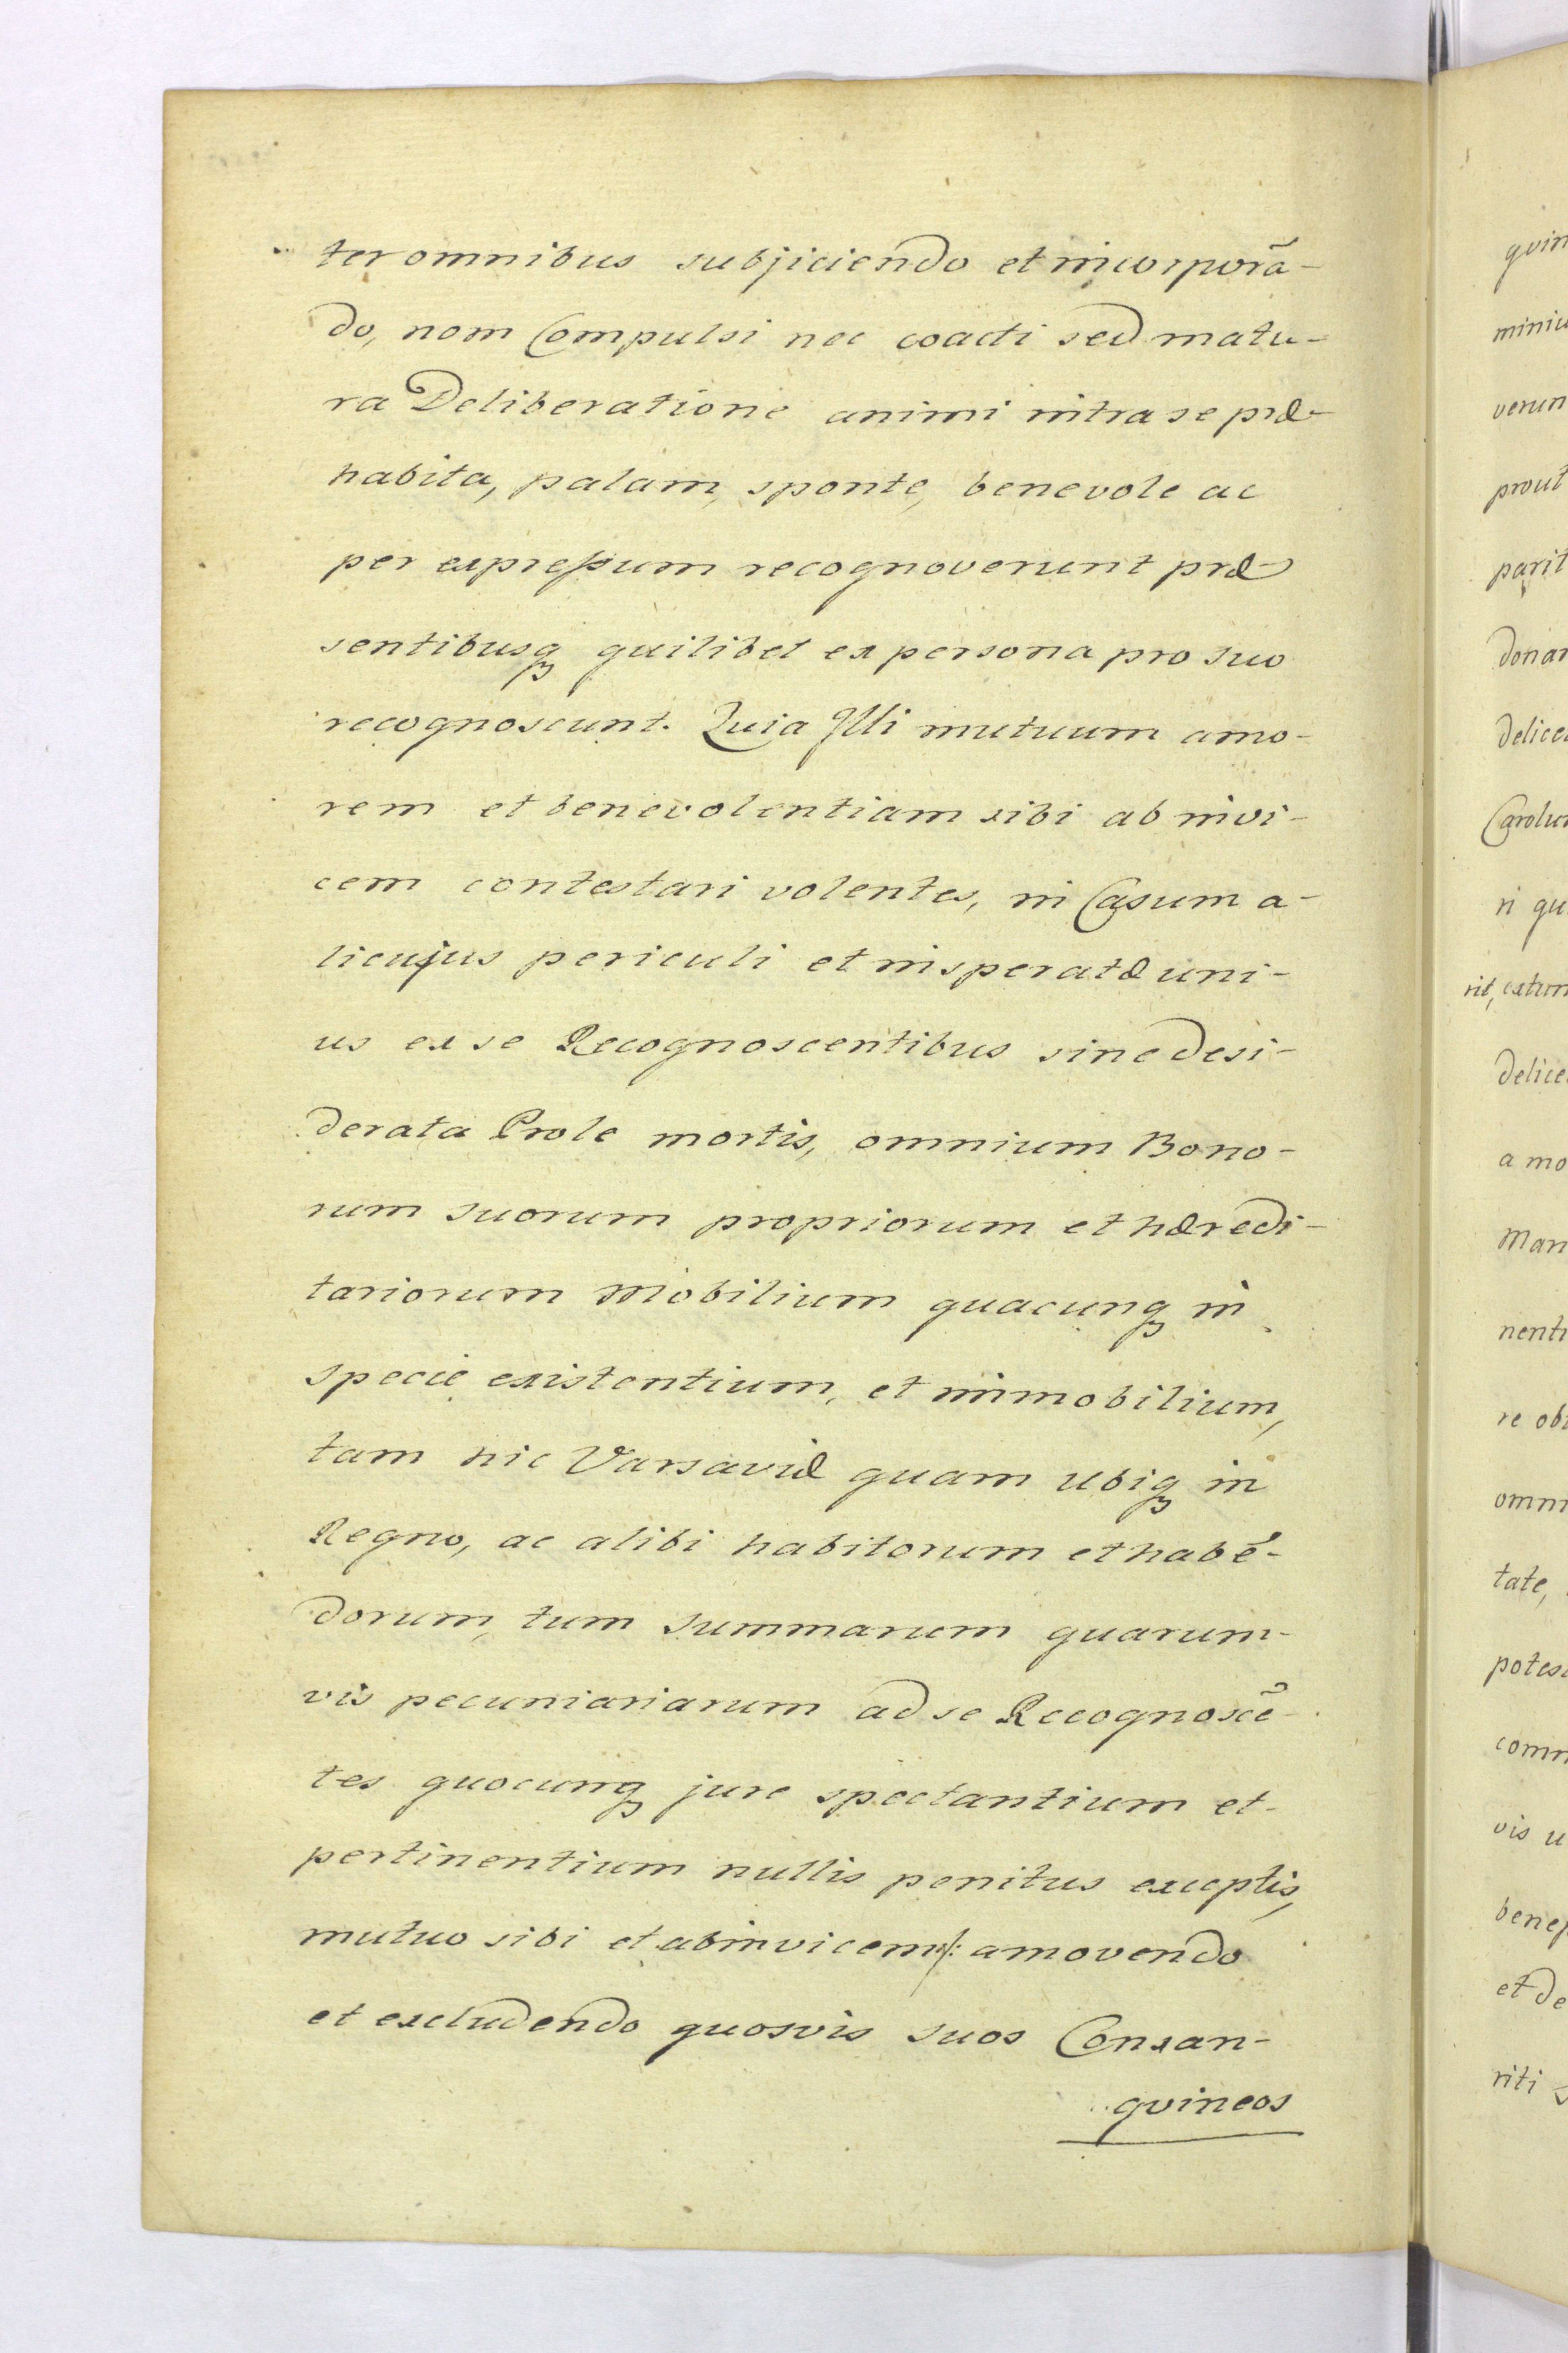 ter omnibus subjiciendo et incorporã-
do, nom Compulsi nec coacti sed matu-
ra Deliberatione animi intra se præ-
habita, palam, sponte, benevole ac
per expressum recognoverunt præ-
sentibusq quilibet ex persona pro suo
recognoscunt. Quia Illi mutuum amo-
rem et benevolentiam sibi ab invi-
cem contestari volentes, in Casum a-
licujus periculi et insperatæ uni-
us ex se Recognoscentibus sine desi-
derata Prole mortis, omnium Bono-
rum suorum propriorum et hæredi-
tariorum Mobilium quacunq in
specie existentium, et immobilium,
tam hic Varsaviæ quam ubiq in
Regno, ac alibi habitorum et habẽ-
dorum, tum summarum quarum-
vis pecuniariarum ad se Recognoscẽ-
tes quocunq jure spectantium et
pertinentium nullis penitus exceptis,
mutuo sibi et abinvicem /: amovendo
et excludendo quosvis suos Consan-
qvineos
qvin
miniu
verun
prout
parit
donar
delice
Carolu
ri qu
rit, extun
delice
a mo
Mar
nenti
re ob
omni
tate,
potes
com
vis u
bene
et de
riti